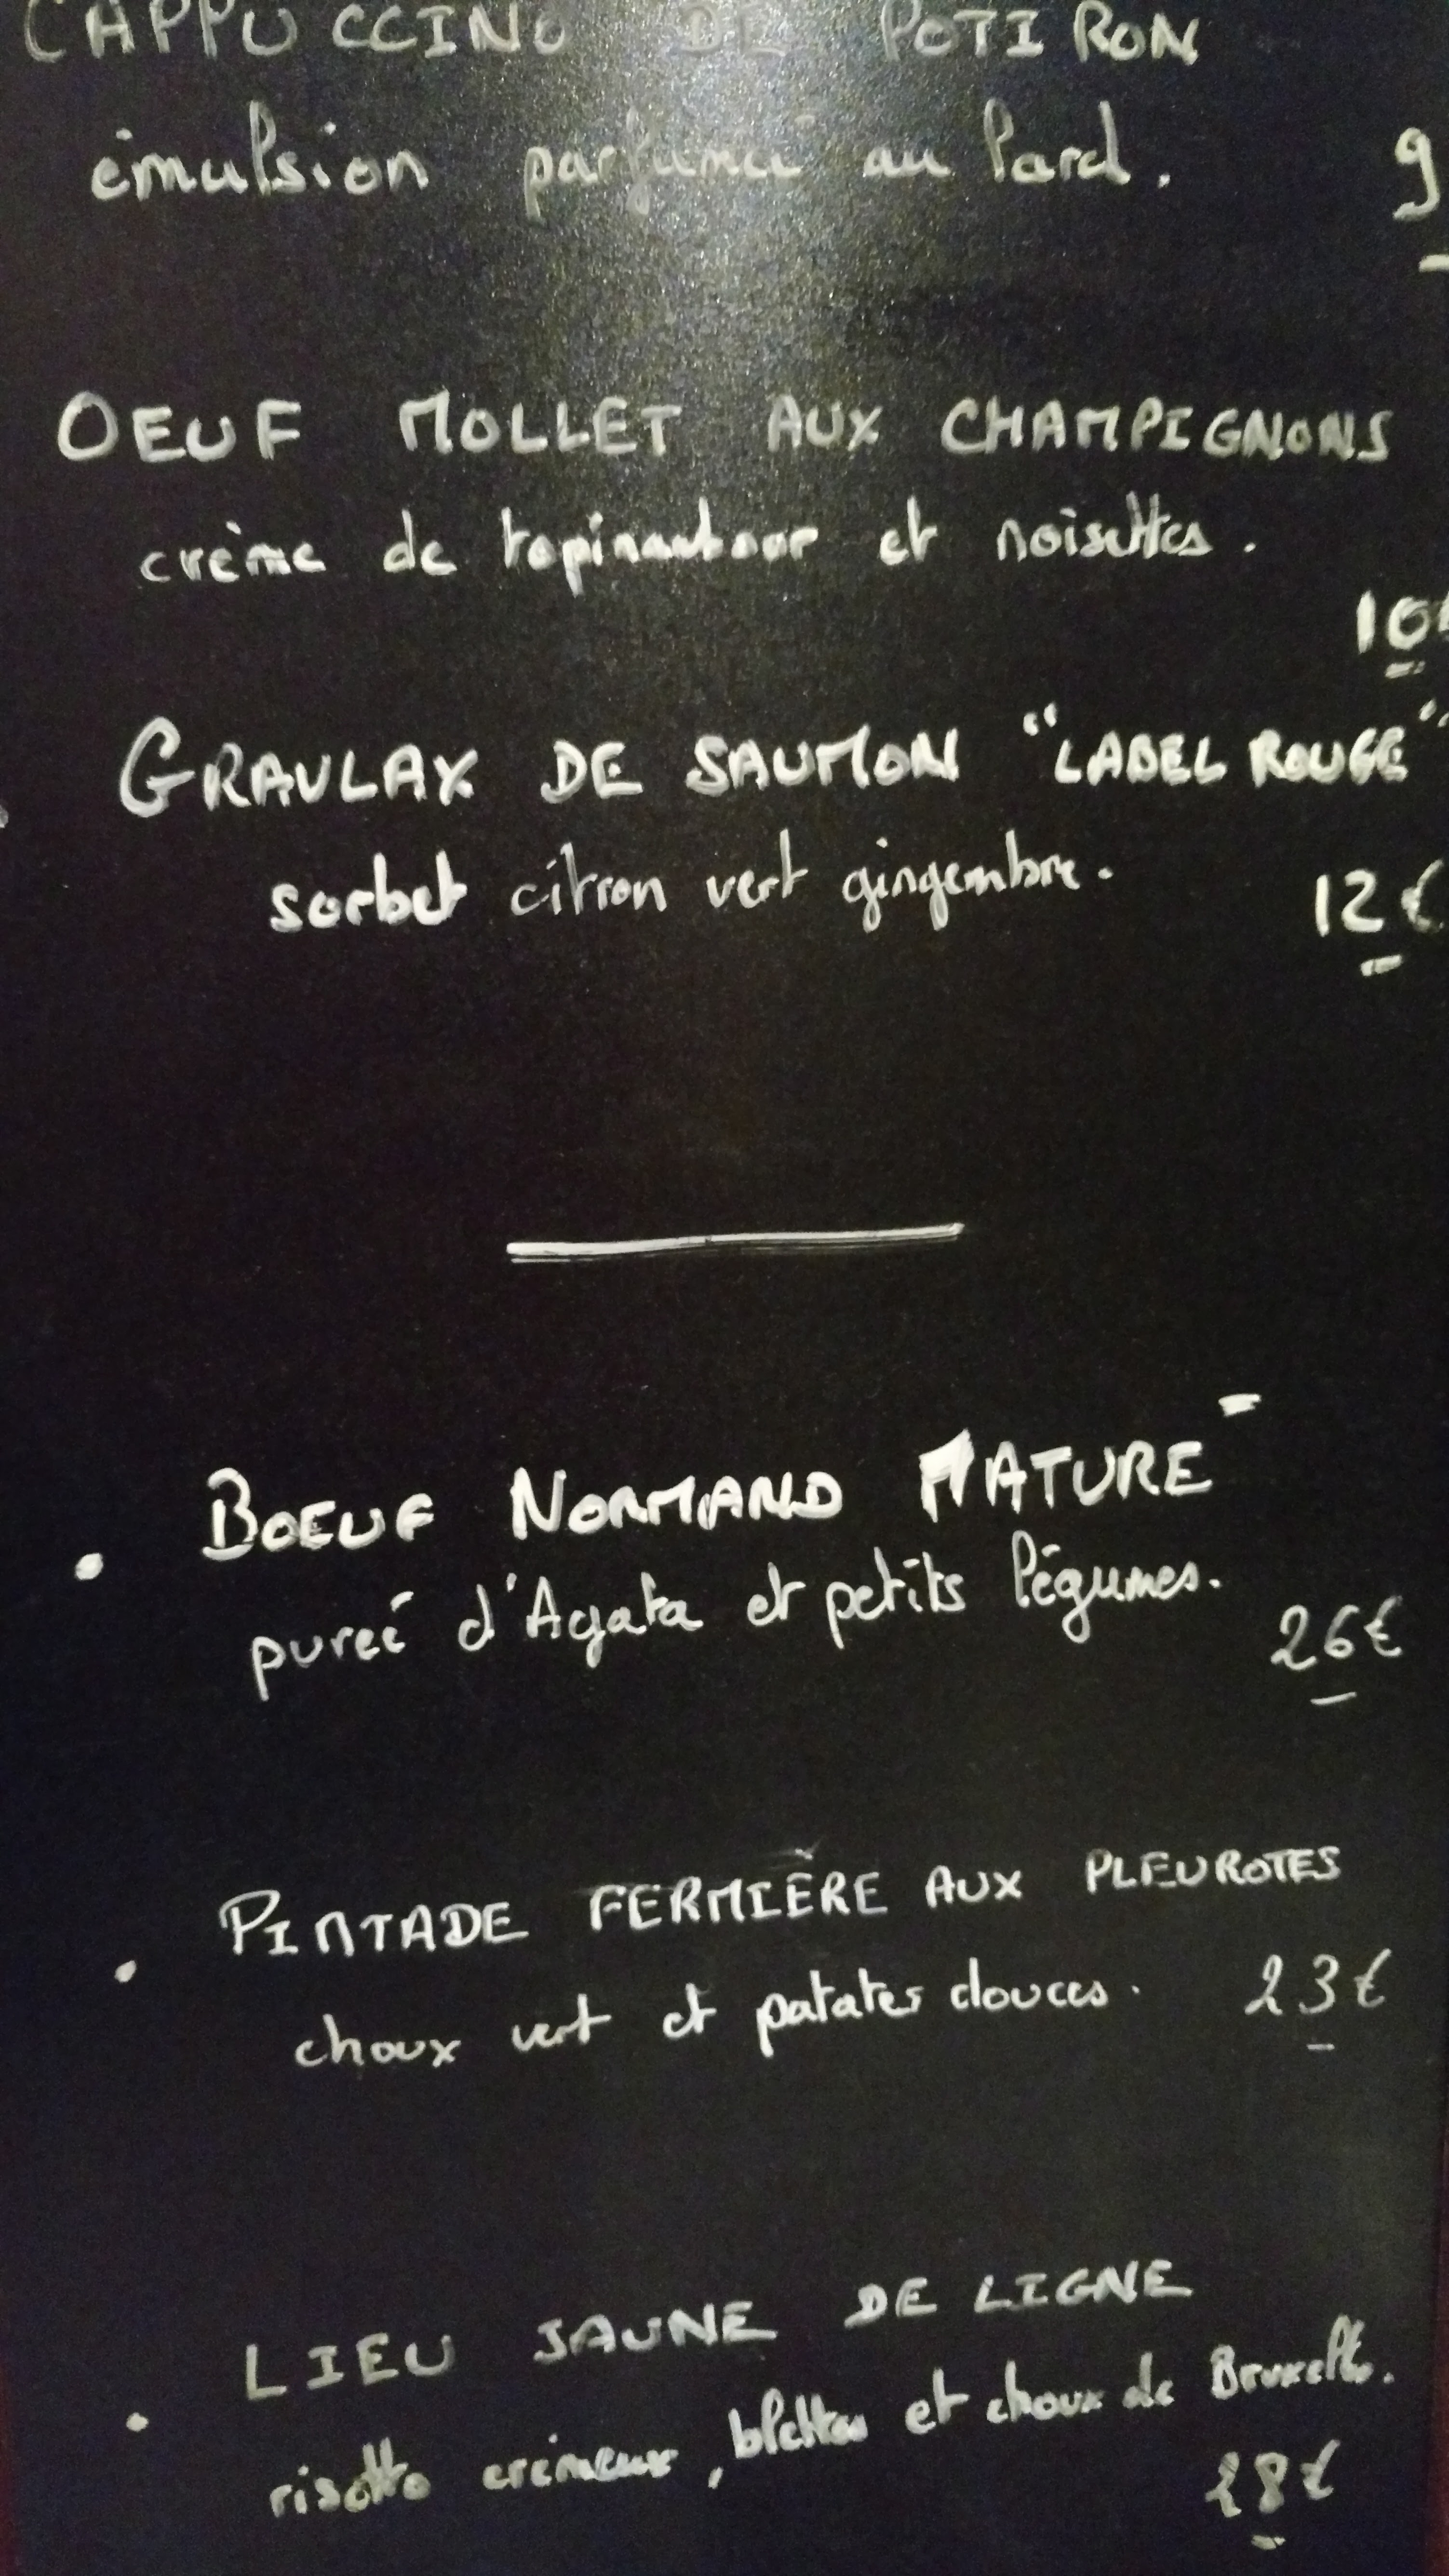 CAPPUCCINO DE POTIRON
émulsion parfumée au lard.
9
OEUF MOLLET AUX CHAMPIGNONS
crème de topinambour et noisettes.
10
GRAVLAX DE SAUMON "LABEL ROUGE"
sorbet citron vert gingembre.
12€
• BOEUF NORMAND MATURE
pureé d'Agata et petits légumes.
26€
• PINTADE FERMIÈRE AUX PLEUROTES
choux vert et patates douces. 23€
• LIEU JAUNE DE LIGNE
risotto crémeux, blettes et choux de Bruxelles.
28€